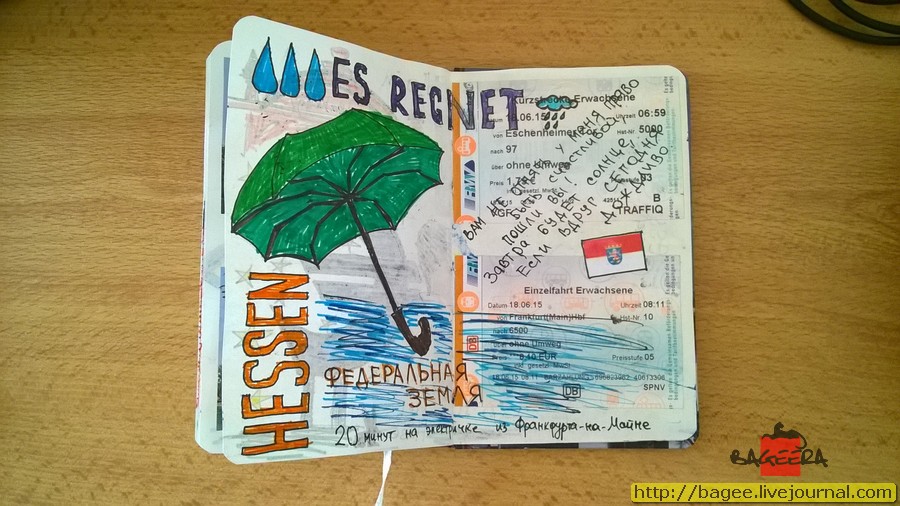 ES REGNET
HESSEN
ФЕДЕРАЛЬНАЯ
ЗЕМЛЯ
20 минут на электричке из Франкфурта-на-Майне
Kurzstrecke Erwachsene
.06.15 Uhrzeit 06:59
von Eschenheimer Hst-Nr 5000
nach 97
über ohne Umweg
Preis 1,
inkl. gesetzl. MwSt.
VGF TRAFFIQ
B
ВАМ НЕ ОТНЯТЬ У МЕНЯ ПРАВО
БЫТЬ СЧАСТЛИВОЙ,
ПОШЛИ ВЫ!
ЗАВТРА БУДЕТ СОЛНЦЕ,
ЕСЛИ ВДРУГ СЕГОДНЯ
ДОЖДЛИВО
Einzelfahrt Erwachsene
Datum 18.06.15 Uhrzeit 08:11
von Frankfurt(Main)Hbf Hst-Nr. 10
nach 6500
über ohne Umweg
Preis 8,40 EUR Preisstufe 05
inkl. gesetzl. MwSt
DB SPNV
BAGEERA
http://bagee.livejournal.com